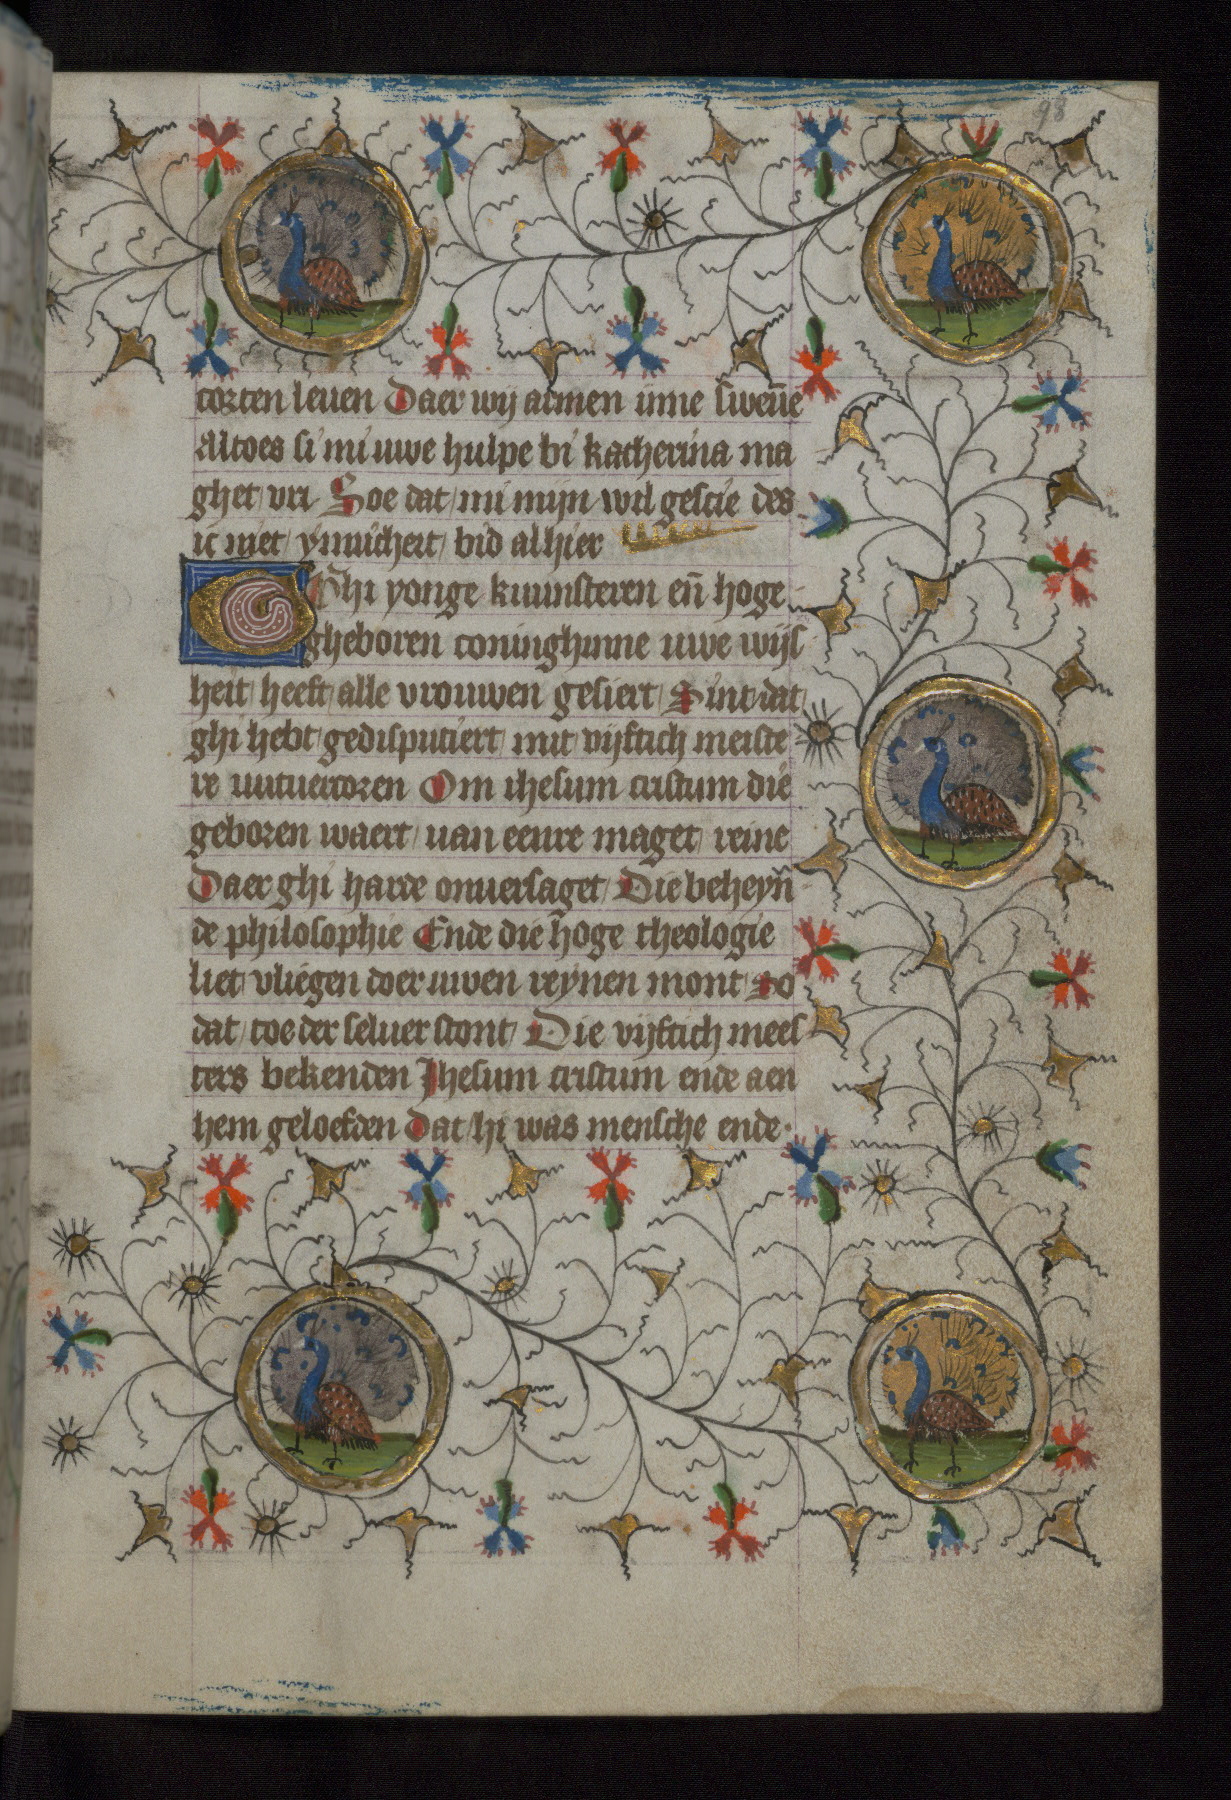 98
corten leuen Daer wij armen inne sweuē
Altoes si mi uwe hulpe bi katherina ma
ghet vri Soe dat mi mijn wil gescie des
ic niet
bid alhier
Ghi yonge kuunsteren en̄ hoge
gheboren coninghinne uwe wijs
heit heeft alle vrouwen gesiert Sint dat
ghi hebt gedisputiert mit vijftich meiste
re uutuercoren Om ihesum cristum die
geboren waert van eenre maget reine
Daer ghi harde onuersaget Die beheyn̄
de philosophie Ende die hoge theologie
liet vliegen doer uwen reynen mont so
dat toe der seluer stont Die vijftich mees
ters bekenden Ihesum cristum ende aen
hem geloefden Dat hi was mensche ende